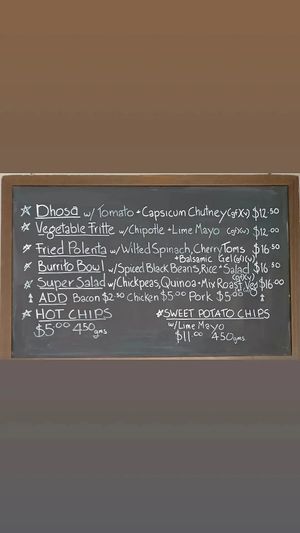 Dhosa w/ Tomato + Capsicum Chutney (gf)(v) $12.50
Vegetable Fritte w/ Chipotle + Lime Mayo (gf)(v) $12.00
Fried Polenta w/ Wilted Spinach, Cherry Toms $16.50
+ Balsamic Gel (gf)(v)
Burrito Bowl w/ Spiced Black Beans, Rice + Salad $16.50
(gf)(v)
Super Salad w/ Chickpeas, Quinoa + Mix Roast Veg $16.00
ADD Bacon $2.50 Chicken $5.00 Pork $5.00
HOT CHIPS
$5.00 450gms
SWEET POTATO CHIPS
w/ Lime Mayo
$11.00 450gms